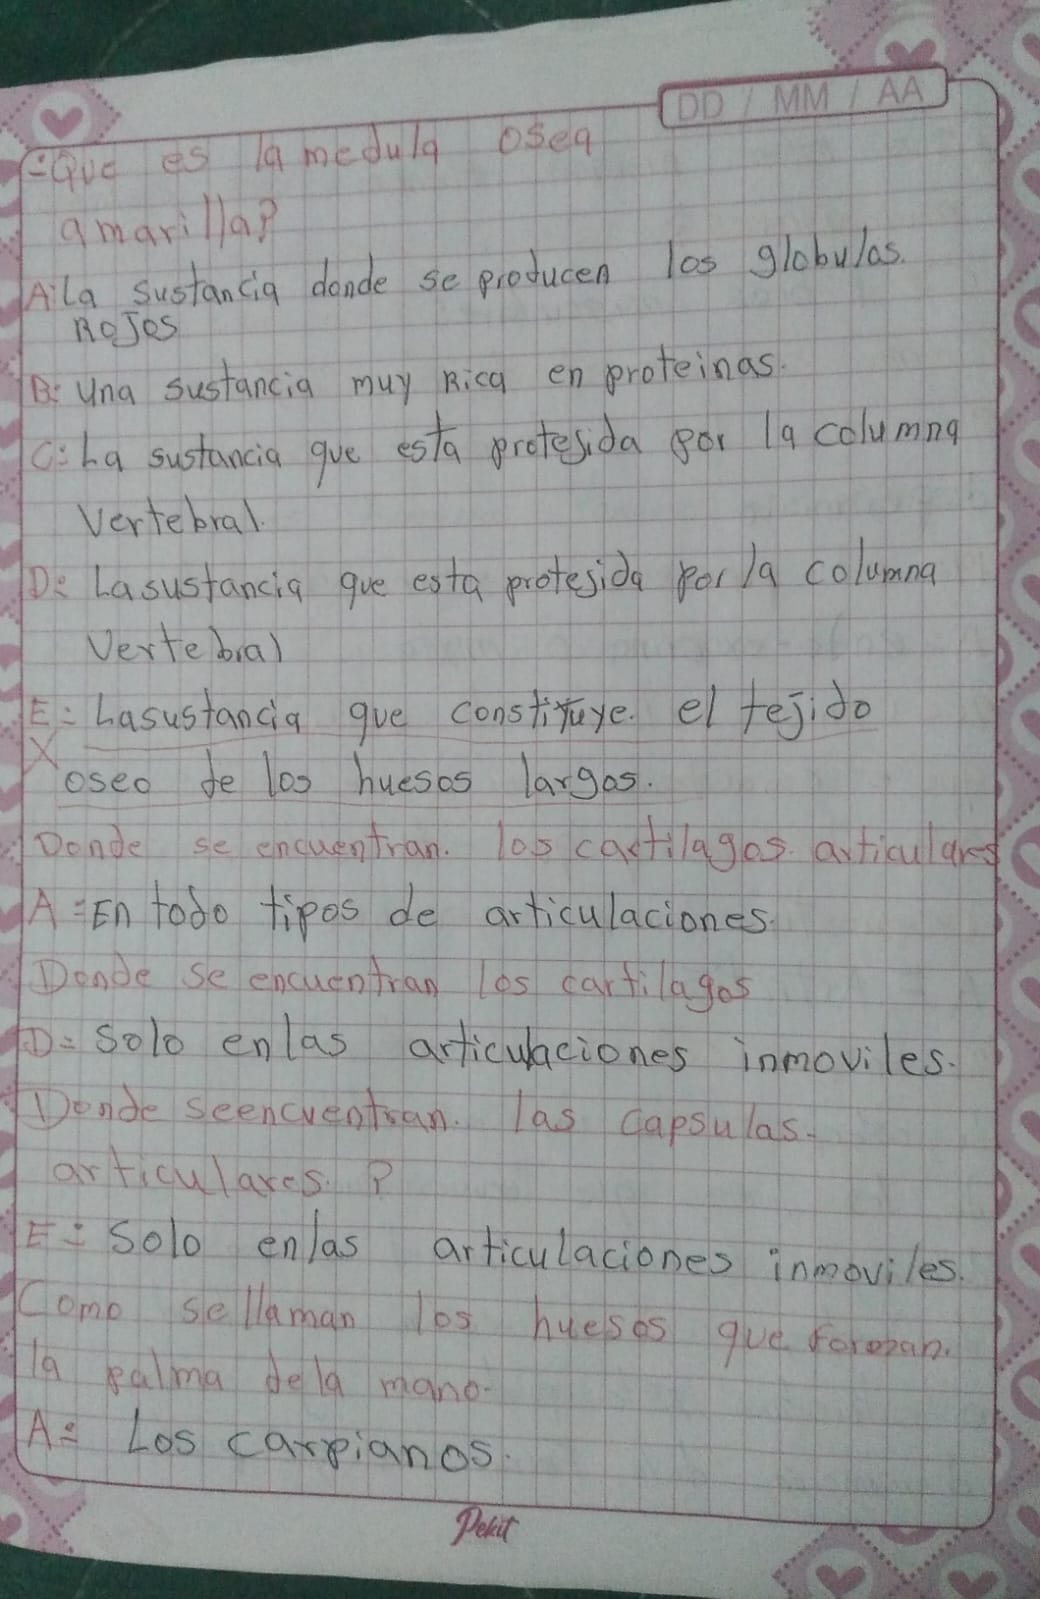 DD / MM / AA
-Que es la medula osea
amarilla?
A: La sustancia donde se producen los globulos.
Rojos
B: Una sustancia muy Rica en proteinas.
C: La sustancia que esta protesida por la columna
Vertebral.
D: La sustancia que esta protesida por la columna
Vertebral
E: La sustancia que constituye. el tejido
X oseo de los huesos largos.
Donde se encuentran. los cartilagos. articulares
A = En todo tipos de articulaciones.
Donde se encuentran los cartilagos
D= Solo en las articulaciones inmoviles.
Donde se encuentran. las capsulas.
articulares. ?
E= Solo en las articulaciones inmoviles.
Como se llaman los huesos que forman.
la palma de la mano.
A= Los carpianos.
Pekit